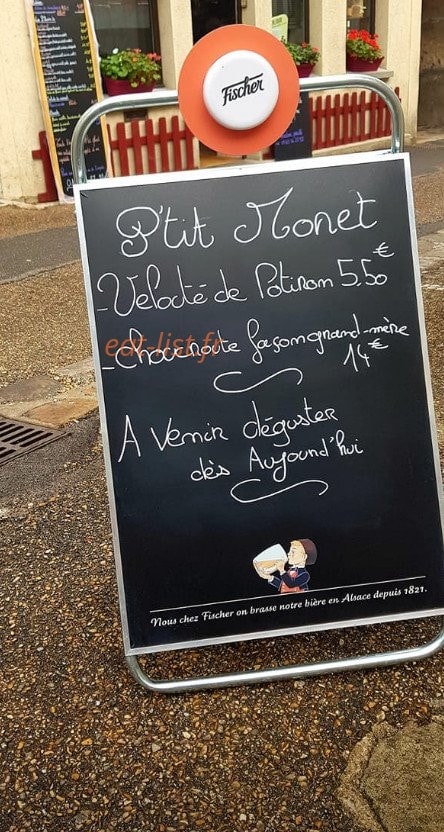 Fischer
P'tit Monet
- Velouté de Potiron 5,50€
eat-list.fr
- Choucroute façon grand-mère
14€
A Venir déguster
dès Aujourd'hui
Nous chez Fischer on brasse notre bière en Alsace depuis 1821.